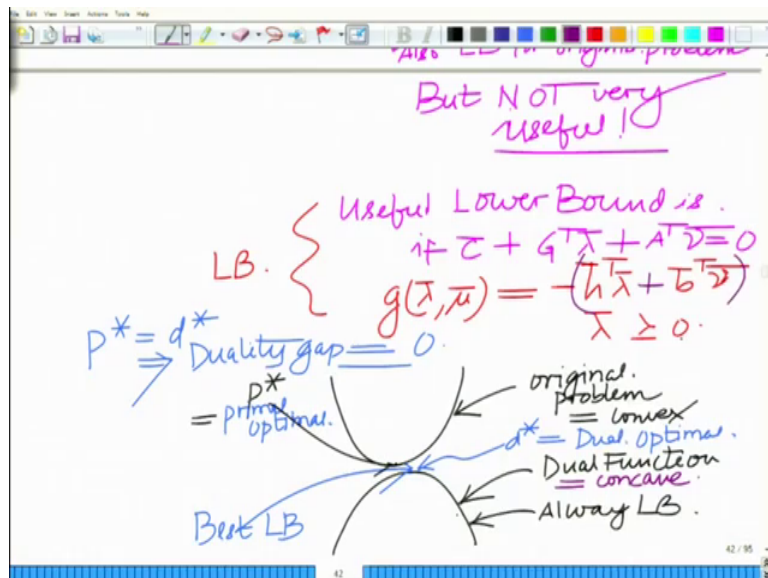 File Edit View Insert Actions Tools Help
Also LB for original problem
But NOT very
useful!
Useful Lower Bound is.
if c̄ + Gᵀλ̄ + Aᵀν̄ = 0
LB.
g(λ̄, μ̄) = -(h̄ᵀλ̄ + b̄ᵀν̄)
λ̄ ≥ 0.
P* = d*
⇒ Duality gap = 0.
P*
= primal
optimal.
original.
problem
= convex
d* = Dual. Optimal.
Dual Function
= concave.
Alway LB.
Best LB
42 / 95
42